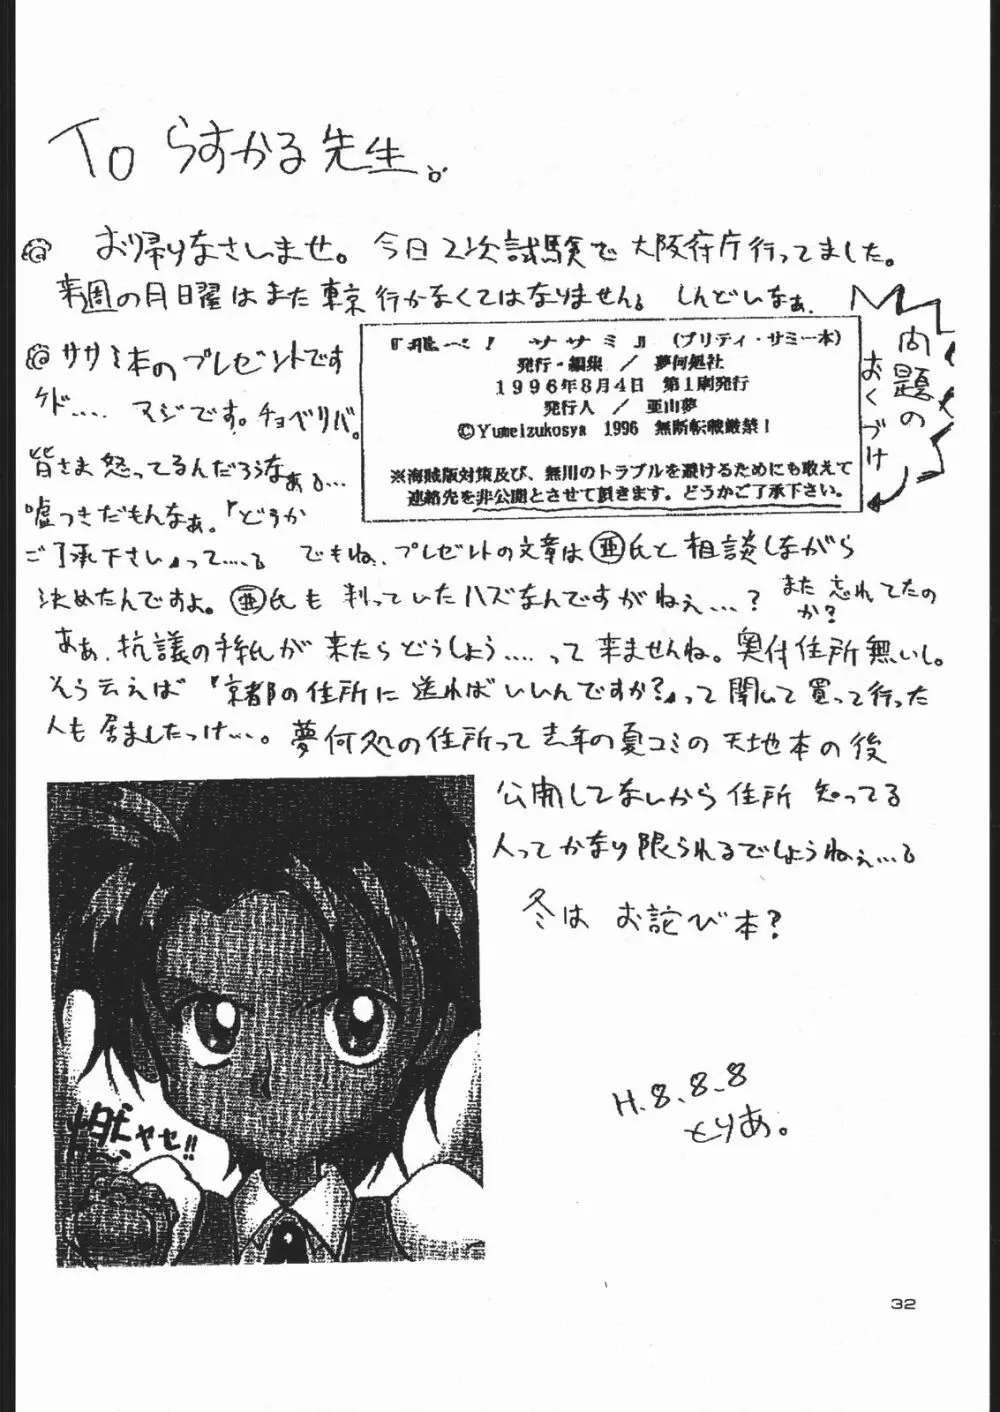 To らすかる先生。
@ お帰りなさいませ。今日2次試験で大阪府庁行ってました。
来週の月曜はまた東京行かなくてはなりません。しんどいなぁ。
@ ササミ本のプレゼントです
ケド.... マジです。チョベリバ。
皆さま怒ってるんだろうなぁ。...
嘘つきだもんなぁ。『どうか
ご了承下さい』って....。でもね、プレゼントの文章は亜氏と相談しながら
決めたんですよ。亜氏も判っていたハズなんですがねぇ...?
また忘れてたの
か?
あぁ、抗議の手紙が来たらどうしよう....って来ませんね。奥付住所無いし。
そう云えば『京都の住所に送ればいいんですか?』って聞いて買って行った
人も居ましたっけ...。夢何処の住所って去年の夏コミの天地本の後
公開してないから住所知ってる
人ってかなり限られるでしょうねぇ...。
冬はお詫び本?
問題の
おくづけ
『飛べ! ササミ』(プリティ・サミー本)
発行・編集 / 夢何処社
1996年8月4日 第1刷発行
発行人 / 亜山夢
©Yumeizukosya 1996 無断転載厳禁!
※海賊版対策及び、無用のトラブルを避けるためにも敢えて
連絡先を非公開とさせて頂きます。どうかご了承下さい。
燃ヤセ!!
H.8.8.8
とりあ。
32